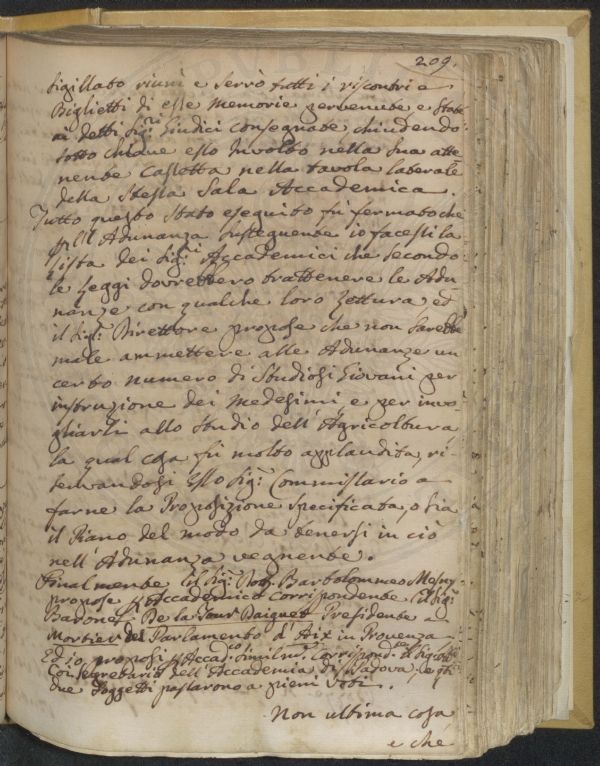 209.
sigillato riunì e serrò tutti i riscontri e
Biglietti di esse Memorie pervenute e state
ai detti Sig.ri Giudici consegnate chiudendo
sotto chiave esso Involto nella sua atte-
nente Cassetta nella tavola laterale
della stessa Sala Accademica.
Tutto questo stato eseguito fù fermato che
p l'Adunanza susseguente io facessi la
lista dei Sig.i Accademici che secondo
le Leggi dovrebbero trattenere le Adu-
nanze con qualche loro Lettura, ed
il Sig.r Direttore propose che non sarebbe
male ammettere alle Adunanze un
certo numero di Studiosi Giovani per
instruzione dei Medesimi e per invo-
gliarli allo studio dell'Agricoltura
la qual cosa fù molto applaudita, ri-
servandosi Esso Sig.r Commissario a
farne la Proposizione specificata, o sia
il Piano del modo da tenersi in ciò
nell'Adunanza vegnente.
Finalmente il Sig.r Bartolommeo Mesny
propose p Accademico Corrispondente il Sig.r
Barone De la Tour Daigues Presidente a
Mortier del Parlamento d'Aix in Provenza
Ed io proposi p Accad.co similm.te Corrispond.te il Sig.r
Segretario dell'Accademia di Padova, e gli
due soggetti passarono a pieni voti.
Non ultima cosa
e che